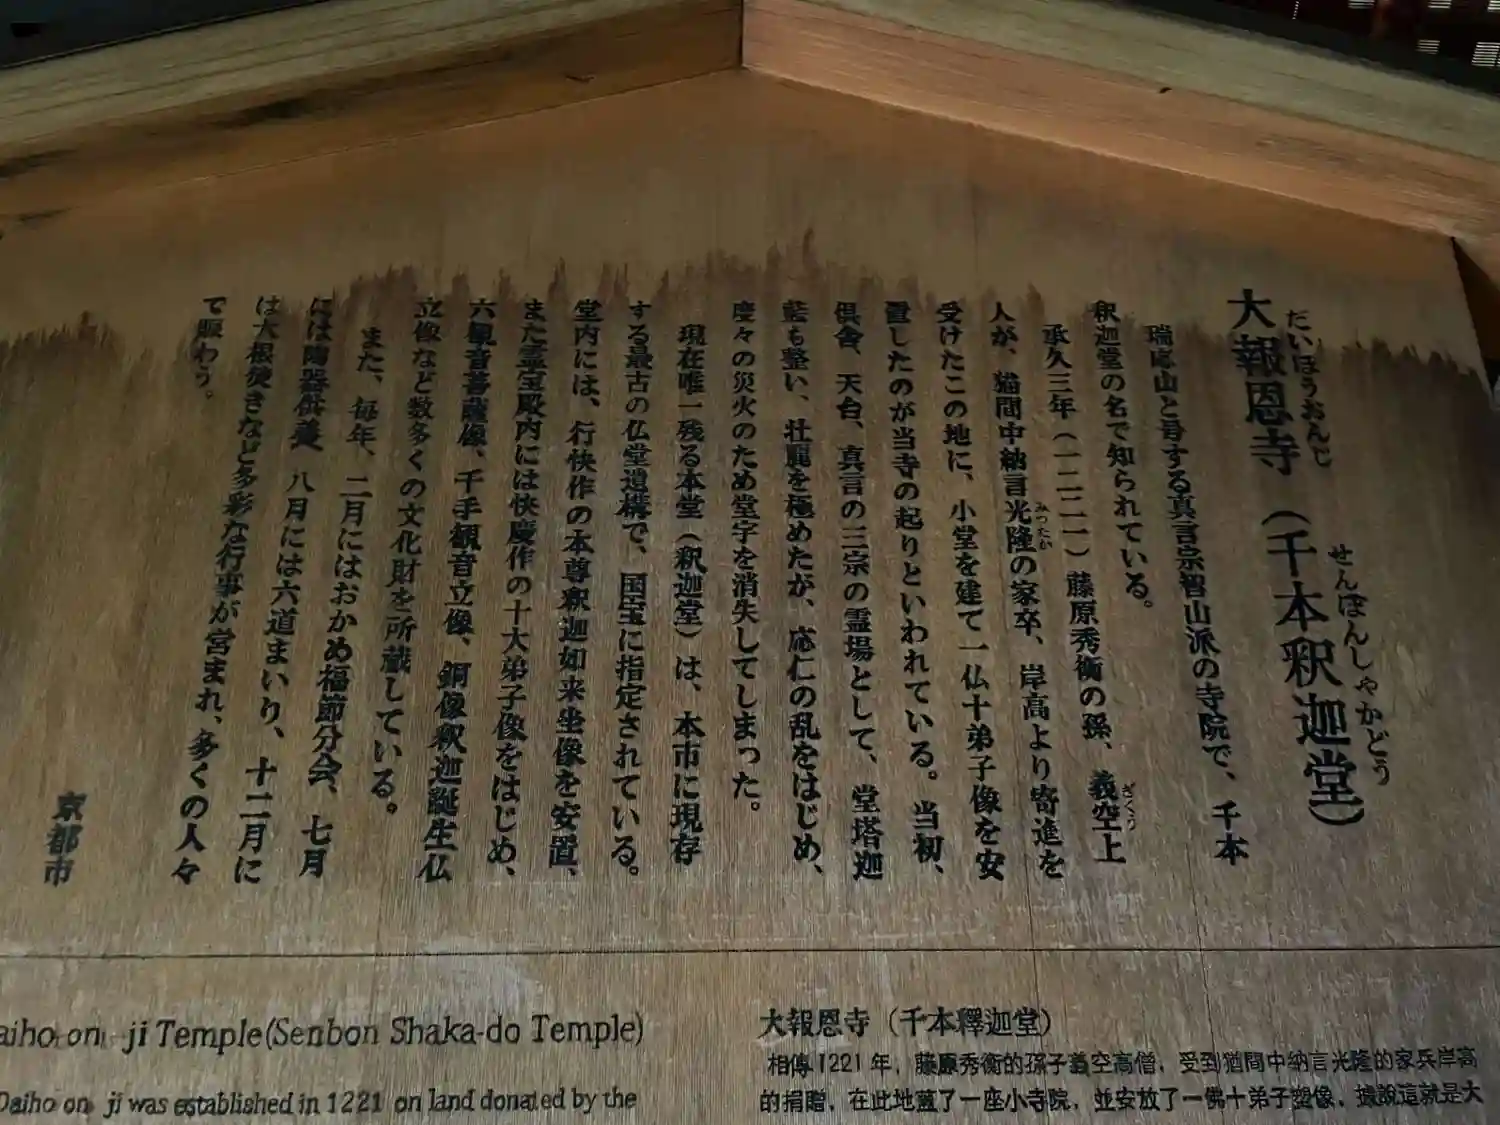 大報恩寺（千本釈迦堂）
だいほうおんじ　せんぼんしゃかどう
瑞応山と号する真言宗智山派の寺院で、千本
釈迦堂の名で知られている。
承久三年（一二二一）藤原秀衡の孫、義空上
ぎくう
人が、猫間中納言光隆の家卒、岸高より寄進を
みつたか
受けたこの地に、小堂を建て一仏十弟子像を安
置したのが当寺の起りといわれている。当初、
倶舎、天台、真言の三宗の霊場として、堂塔迦
藍も整い、壮麗を極めたが、応仁の乱をはじめ、
度々の災火のため堂宇を消失してしまった。
現在唯一残る本堂（釈迦堂）は、本市に現存
する最古の仏堂遺構で、国宝に指定されている。
堂内には、行快作の本尊釈迦如来坐像を安置、
また霊宝殿内には快慶作の十大弟子像をはじめ、
六観音菩薩像、千手観音立像、銅像釈迦誕生仏
立像など数多くの文化財を所蔵している。
また、毎年、二月にはおかめ福節分会、七月
には陶器供養　八月には六道まいり、十二月に
は大根焚きなど多彩な行事が営まれ、多くの人々
で賑わう。
京都市
aiho on ji Temple(Senbon Shaka-do Temple)
Daiho on ji was established in 1221 on land donated by the
大報恩寺（千本釋迦堂）
相傳1221年，藤原秀衡的孫子義空高僧，受到猶間中納言光隆的家兵岸高
的捐贈，在此地蓋了一座小寺院，並安放了一佛十弟子塑像，據說這就是大